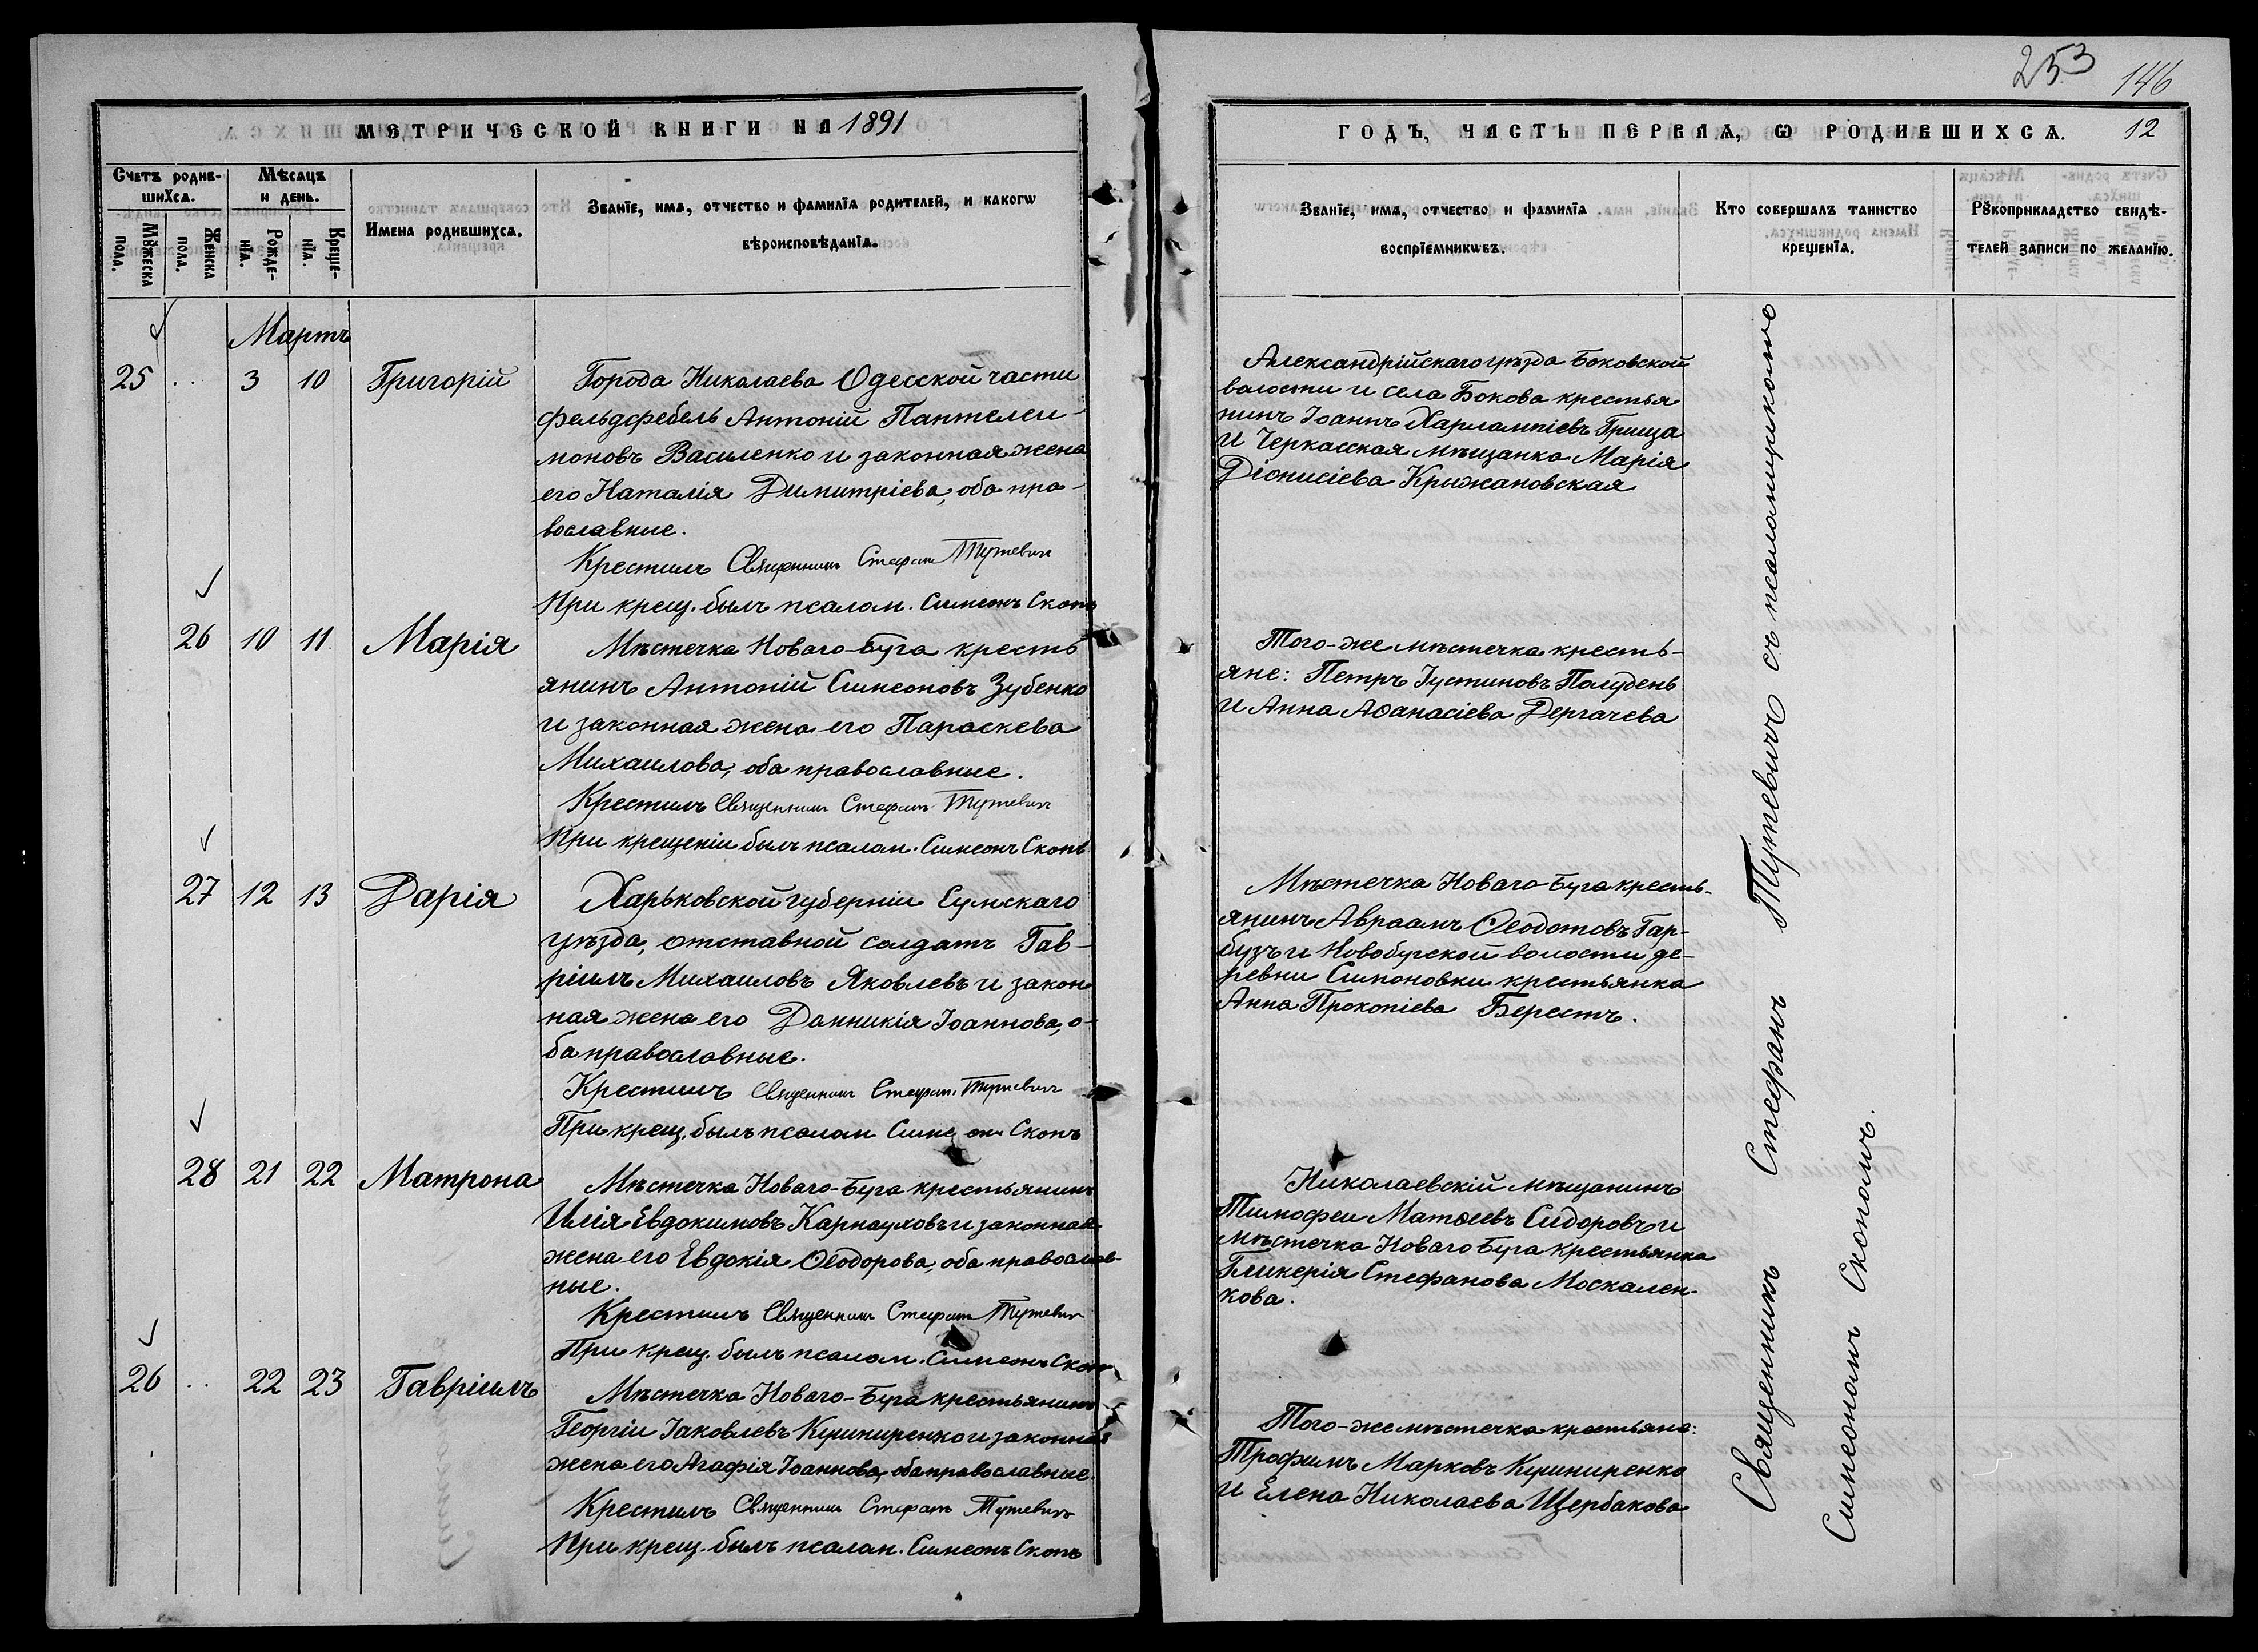 253
146
МЕТРИЧЕСКОЙ КНИГИ НА 1891
ГОДЪ, ЧАСТЬ ПЕРВАЯ, Ѡ РОДИВШИХСѦ.
12
Счетъ родив-
шихсѧ.
Мѣсѧцъ
и день.
Мꙋжеска
пола.
Женска
пола.
Рожде-
нїѧ.
Креще-
нїѧ.
Имена родившихсѧ.
Званїе, имѧ, отчество и фамилїѧ родителей, и какогѡ
вѣроисповѣданїѧ.
Званїе, имѧ, отчество и фамилїѧ
воспрїемникѡвъ.
Кто совершалъ таинство
крещенїѧ.
Рꙋкоприкладство свидѣ-
телей записи по желанїю.
Мартъ
25 .. 3 10 Григорій
Города Николаева Одесской части
фельдфебель Антоній Пантелеи-
моновъ Василенко и законная жена
его Наталія Димитріева, оба пра-
вославные.
Крестилъ Священникъ Стефанъ Тутевич
При крещ. былъ псалом. Симеонъ Скоп
Александрійскаго уѣзда Боковской
волости и села Бокова крестья
нинъ Іоаннъ Харлампіевъ Грища
и Черкасская мѣщанка Марія
Діонисіева Крыжановская
26 10 11 Марія
Мѣстечка Новаго-Буга кресть
янинъ Антоній Симеоновъ Зубенко
и законная жена его Параскева
Михаилова, оба православные.
Крестилъ Священникъ Стефанъ Тутевич
При крещеніи былъ псалом. Симеонъ Скоп
Того-же мѣстечка кресть-
яне: Петръ Іустиновъ Полудень
и Анна Аѳанасіева Дергачева
27 12 13 Дарія
Харьковской губерніи Сумскаго
уѣзда, отставной солдатъ Гав-
ріилъ Михаиловъ Яковлевъ и закон
ная жена его Данникія Іоаннова, о-
ба православные.
Крестилъ Священникъ Стефанъ Тутевич
При крещ. былъ псалом Симеон Скопъ
Мѣстечка Новаго Буга кресть-
янинъ Авраамъ Ѳеодотовъ Гар-
бузъ и Новобугской волости де-
ревни Симоновки крестьянка
Анна Прокопіева Берестъ.
28 21 22 Матрона
Мѣстечка Новаго-Буга крестьянинъ
Илія Евдокимовъ Карнауховъ и законная
жена его Евдокія Ѳеодорова, оба православ-
ные.
Крестилъ Священникъ Стефанъ Тутевич
При крещ. былъ псалом. Симеонъ Скоп
Николаевскій мѣщанинъ
Тимофеи Матѳеевъ Сидоровъ и
мѣстечка Новаго Буга крестьянка
Гликерія Стефанова Москален-
кова.
26 .. 22 23 Гавріилъ
Мѣстечка Новаго-Буга крестьянинъ
Георгіи Іаковлевъ Кушниренко и законная
жена его Агафія Іоаннова, оба православные.
Крестилъ Священникъ Стефанъ Тутевич
При крещ. былъ псалом. Симеонъ Скопъ
Того-же мѣстечка крестьяне:
Трофимъ Марковъ Кушниренко
и Елена Николаева Щербакова
Священникъ Стефанъ Тутевичъ съ псаломщикомъ
Симеономъ Скопомъ.